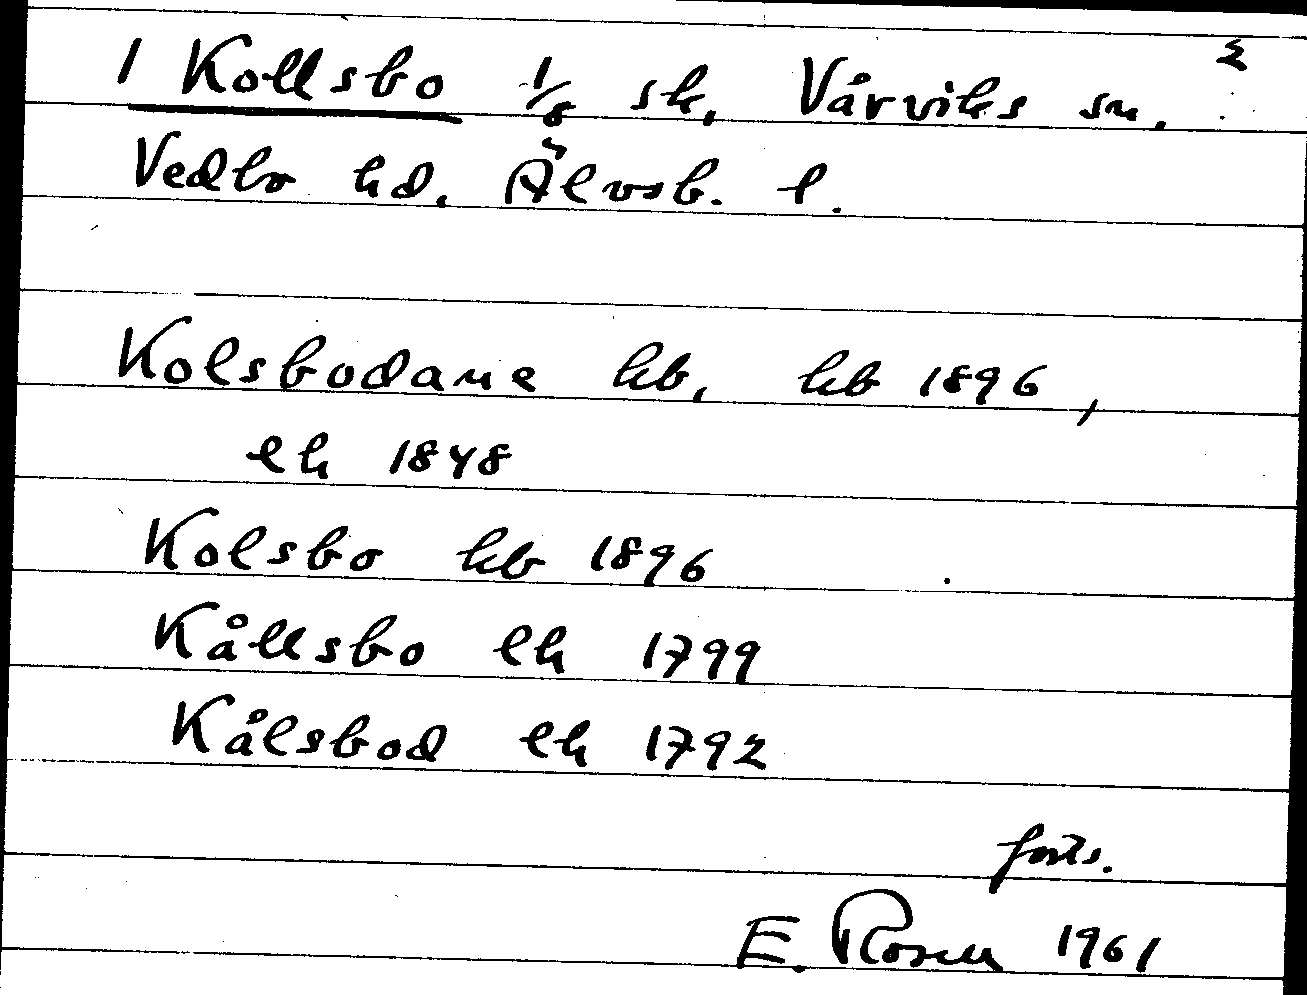 1 Kollsbo 1/8 sk, Vårviks sn.
Vedbo hd. Älvsb. l.
Kolsbodane kb, kb 1896,
lh 1848
Kolsbo kb 1896
Kållsbo lh 1799
Kålsbod lh 1792
forts.
E. Rosen 1961